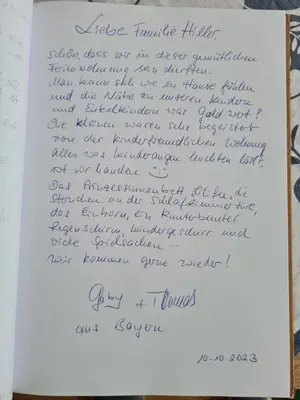 Liebe Familie Hiller,
schön, dass wir in dieser gemütlichen
Ferienwohnung sein durften.
Man kann sich wie zu Hause fühlen
und die Nähe zu unseren Kindern
und Enkelkindern war Gold wert!
Die Kleinen waren sehr begeistert
von der kinderfreundlichen Wohnung
alles was Kinderaugen leuchten lässt,
ist vorhanden
Das Prinzessinnenbett Lilifee, die
Sternchen an der Schlafzimmertüre,
das Einhorn, ein kunterbunter
Regenschirm, Kindergeschirr und
viele Spielsachen...
Wir kommen gerne wieder!
Gaby + Thomas
aus Bayern
12-10-2023